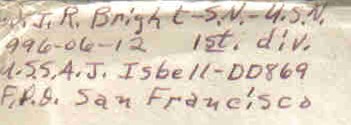 J.R. Bright-S.N.-U.S.N.
996-06-12 1st. div.
U.S.S.A.J. Isbell-DD869
F.P.O. San Francisco